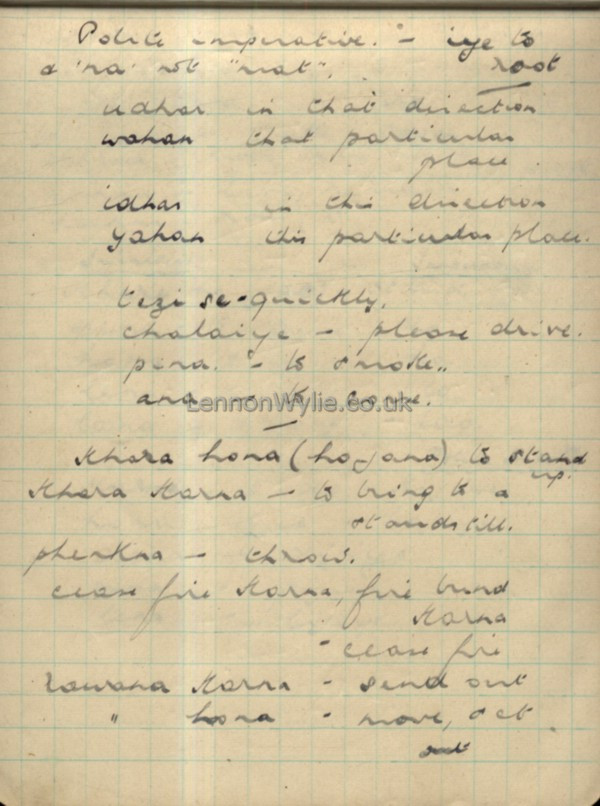 Polite imperative. - iye to
a 'na' not "mat". root
udhar in that direction
wahan that particular
place.
idhar in this direction
yahan this particular place.
tezi se - quickly.
chalaiye - please drive.
pina. - to smoke..
ana - to come.
LennonWylie.co.uk
Khara hona (hojana) to stand
up.
Khara Karna - to bring to a
standstill.
phenkna - throw.
cease fire Karna, fire bund
Karna
- cease fire
rawana Karna - send out
" hona - move, set
out